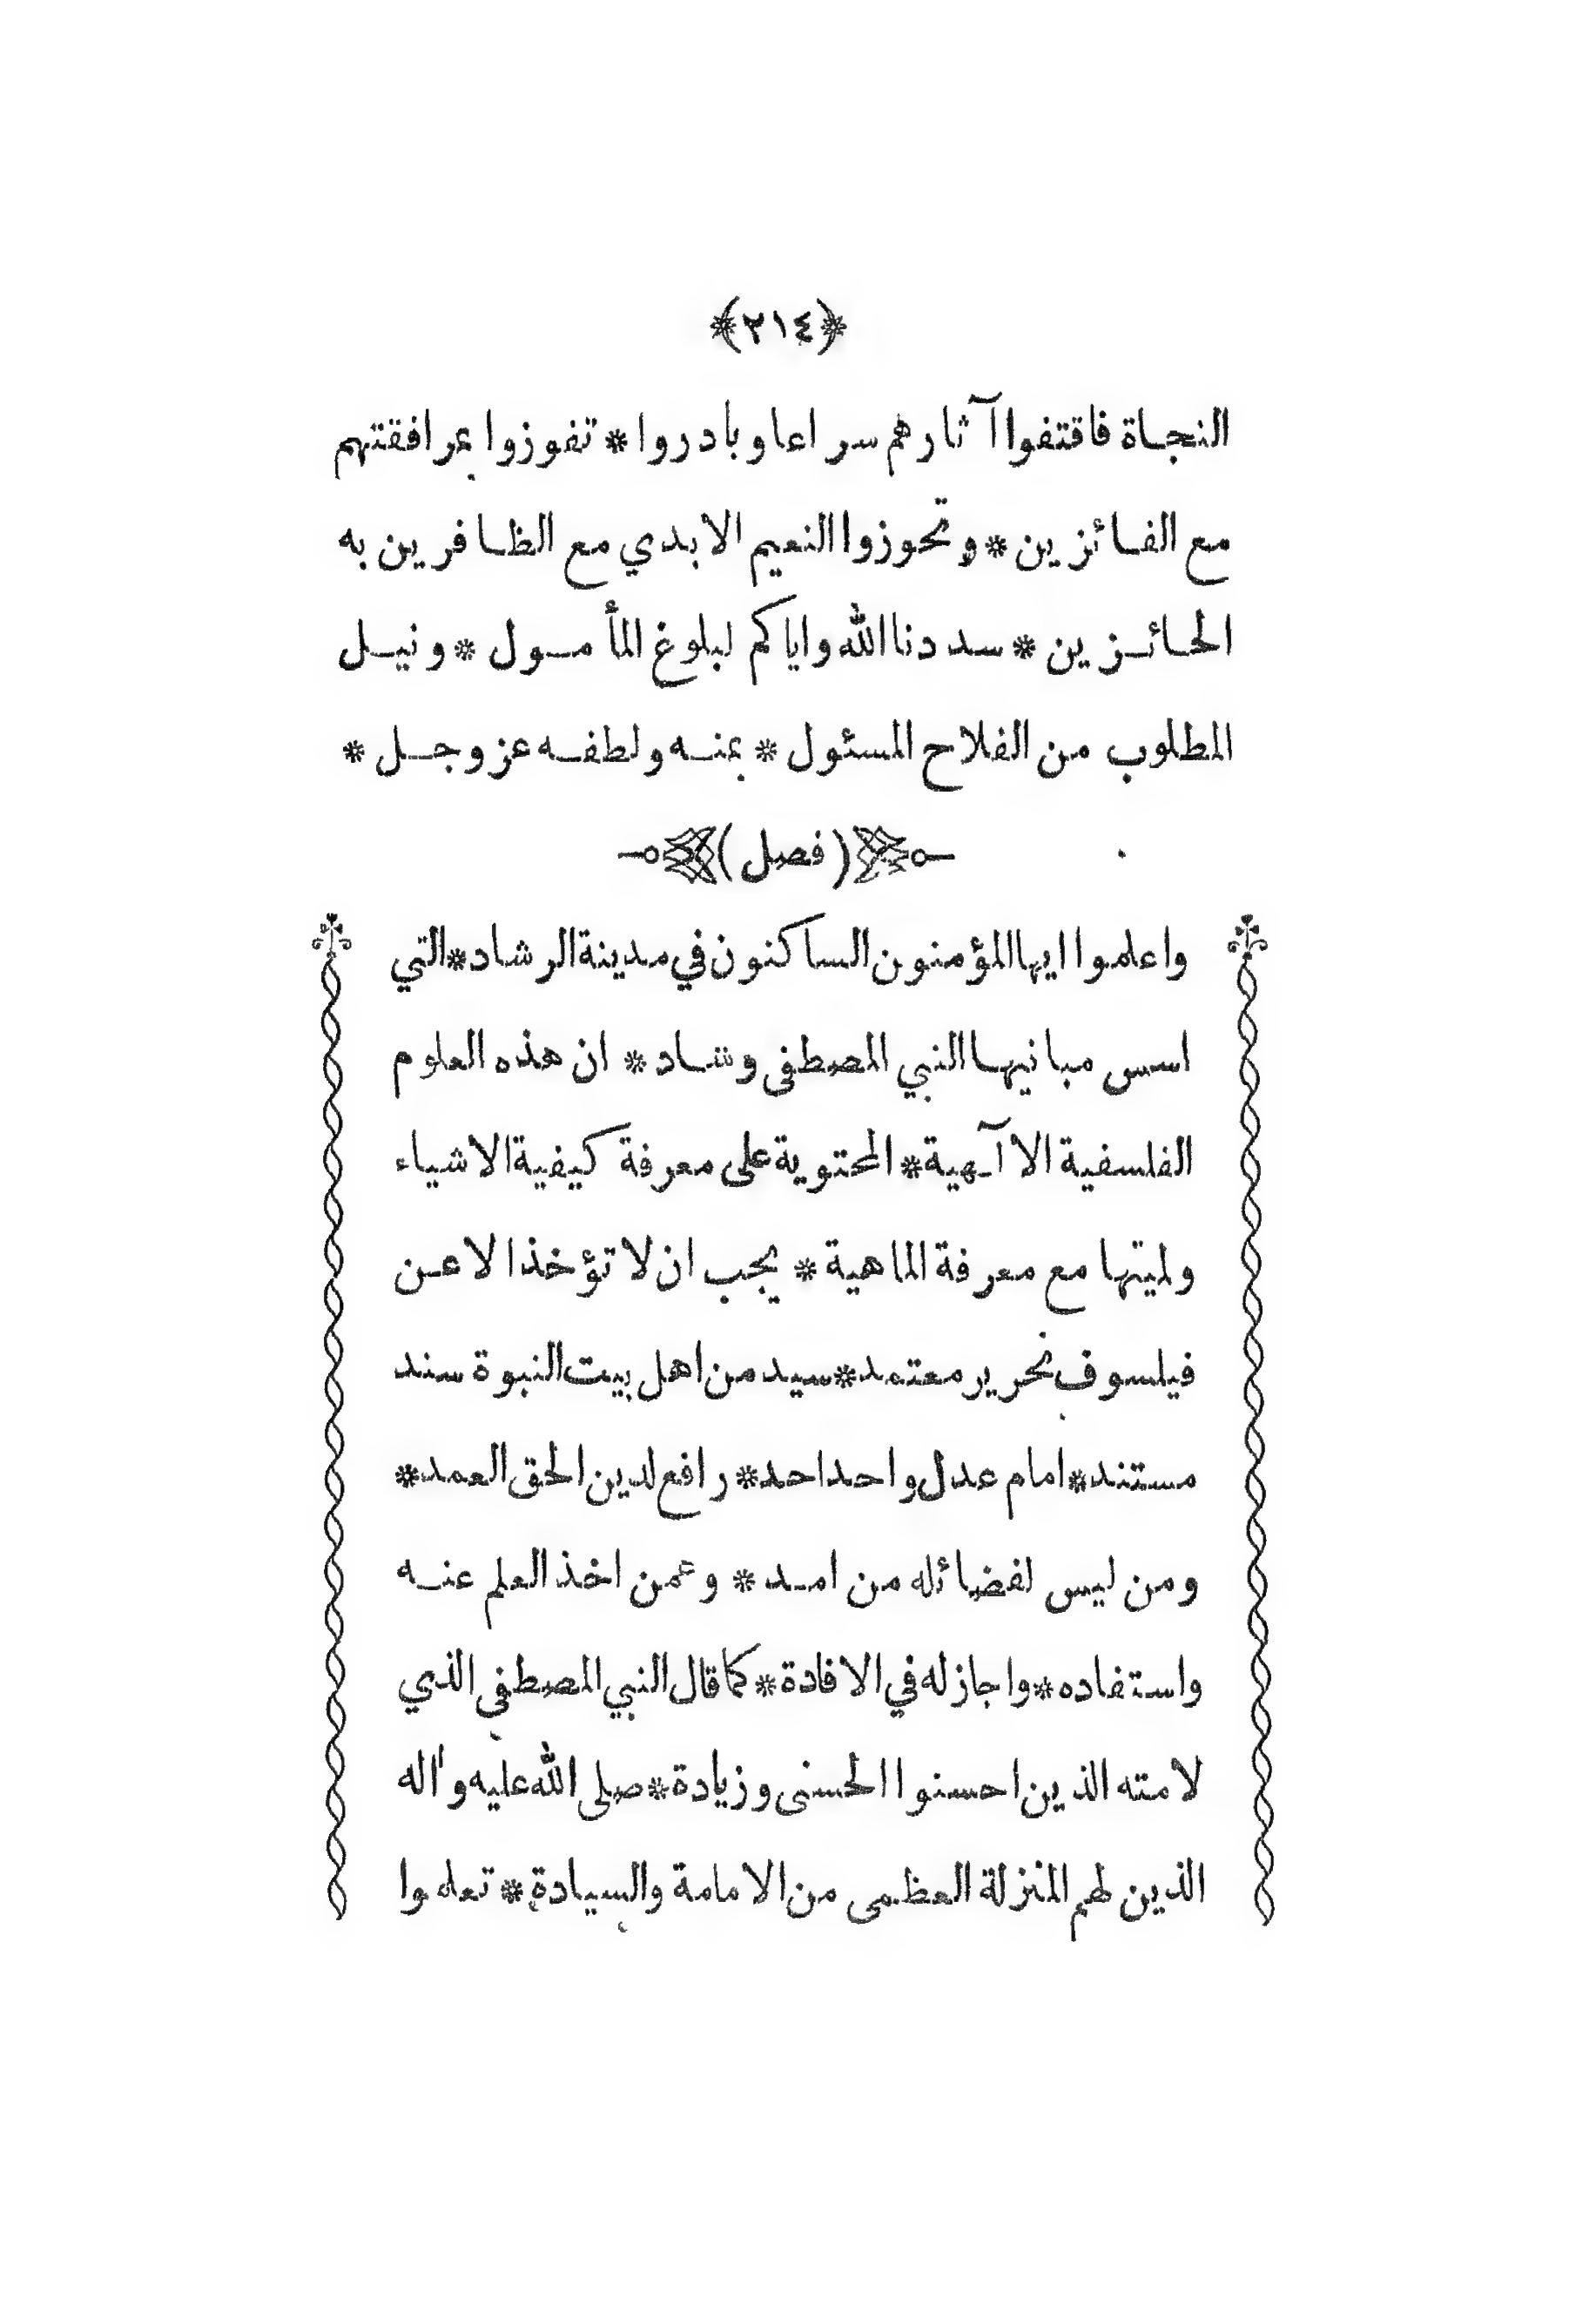 ﴿٢١٤﴾
النجاة فاقتفوا آثارهم سراعا وبادروا * تفوزوا بمرافقتهم
مع الفائزين * وتحوزوا النعيم الابدي مع الظافرين به
الحائزين * سددنا الله واياكم لبلوغ المأمول * ونيل
المطلوب من الفلاح المسئول * بمنه ولطفه عز وجل *
(فصل)
واعلموا ايها المؤمنون الساكنون في مدينة الرشاد * التي
اسس مبانيها النبي المصطفى وشاد * ان هذه العلوم
الفلسفية الاآلهية * المحتوية على معرفة كيفية الاشياء
ولميتها مع معرفة الماهية * يجب ان لا تؤخذ الا عن
فيلسوف نحرير معتمد * سيد من اهل بيت النبوة سند
مستند * امام عدل واحد احد * رافع لدين الحق العمد *
ومن ليس لفضائله من امد * وعمن اخذ العلم عنه
واستفاده * واجاز له في الافادة * كما قال النبي المصطفى الذي
لامته الذين احسنوا الحسنى وزيادة * صلى الله عليه وآله
الذين لهم المنزلة العظمى من الامامة والسيادة * تعلموا